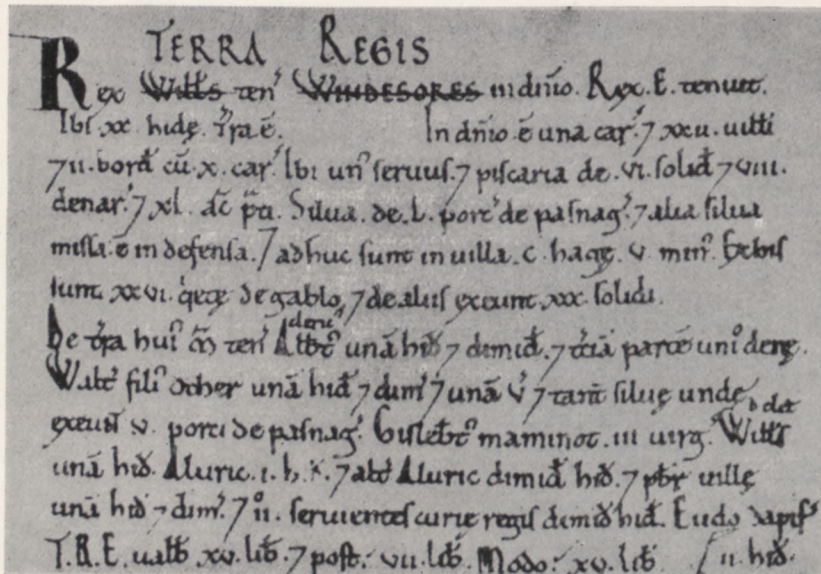 TERRA REGIS
Rex Willꝉs ten̄ WINDESORES in dn̄io. Rex. E. tenuit.
Ibi xx. hidę. t̄ra ē. In dn̄io ē una car̄. ⁊ xxii. uilli
⁊ ii. bord̄ cū. x. car̄. Ibi un̄ seruus. ⁊ piscaria de. vi. solid̄ ⁊ viii.
denar̄. ⁊ xl. ac̄ p̄ti. Silua. de. L. porc̄ de pasnaḡ. ⁊ alia silua
missa. ē in defensa. ⁊ adhuc sunt in uilla. c. hagę. v. min̄.
sunt xxvi. de gablo, ⁊ de aliis exeunt. xxx. solidi.
De t̄ra hui ten̄ Alb̄t unā hid̄ ⁊ dimid̄. ⁊ t̄ciā partē uni denę.
Walt̄ fili Other unā hid̄ ⁊ dim̄. ⁊ unā v̄ ⁊ tant̄ siluę unde
exeun̄t v. porci de pasnaḡ. Gisleb̄t maminot. iii uirḡ. Willꝉs
unā hid̄. Aluric. i. h. ⁊ alt̄ Aluric dimid̄ hid̄. ⁊ pb̄r uillę
unā hid̄ ⁊ dim̄. ⁊ ii. seruientes curię regis dimid̄ hid̄. Eudo dapif̄
T.R.E. ualb̄ xv. lib̄. ⁊ post. vii. lib̄. Modo. xv. lib̄ ii. hid̄.